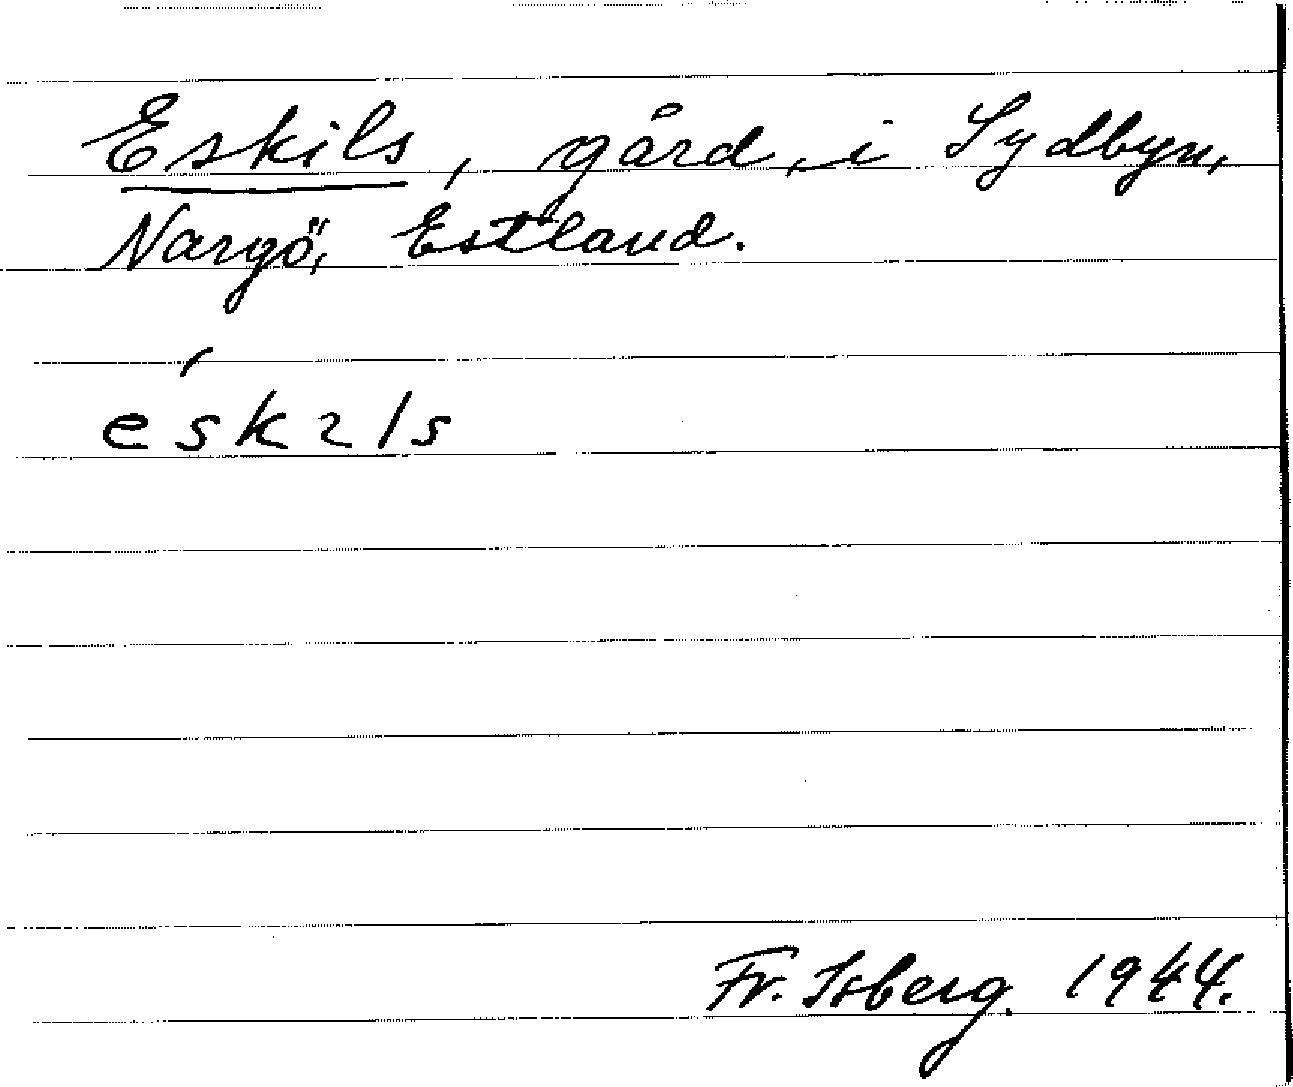 Eskils, gård, i Sydbyn,
Nargö, Estland.
éskɪls
Fr. Isberg. 1944.